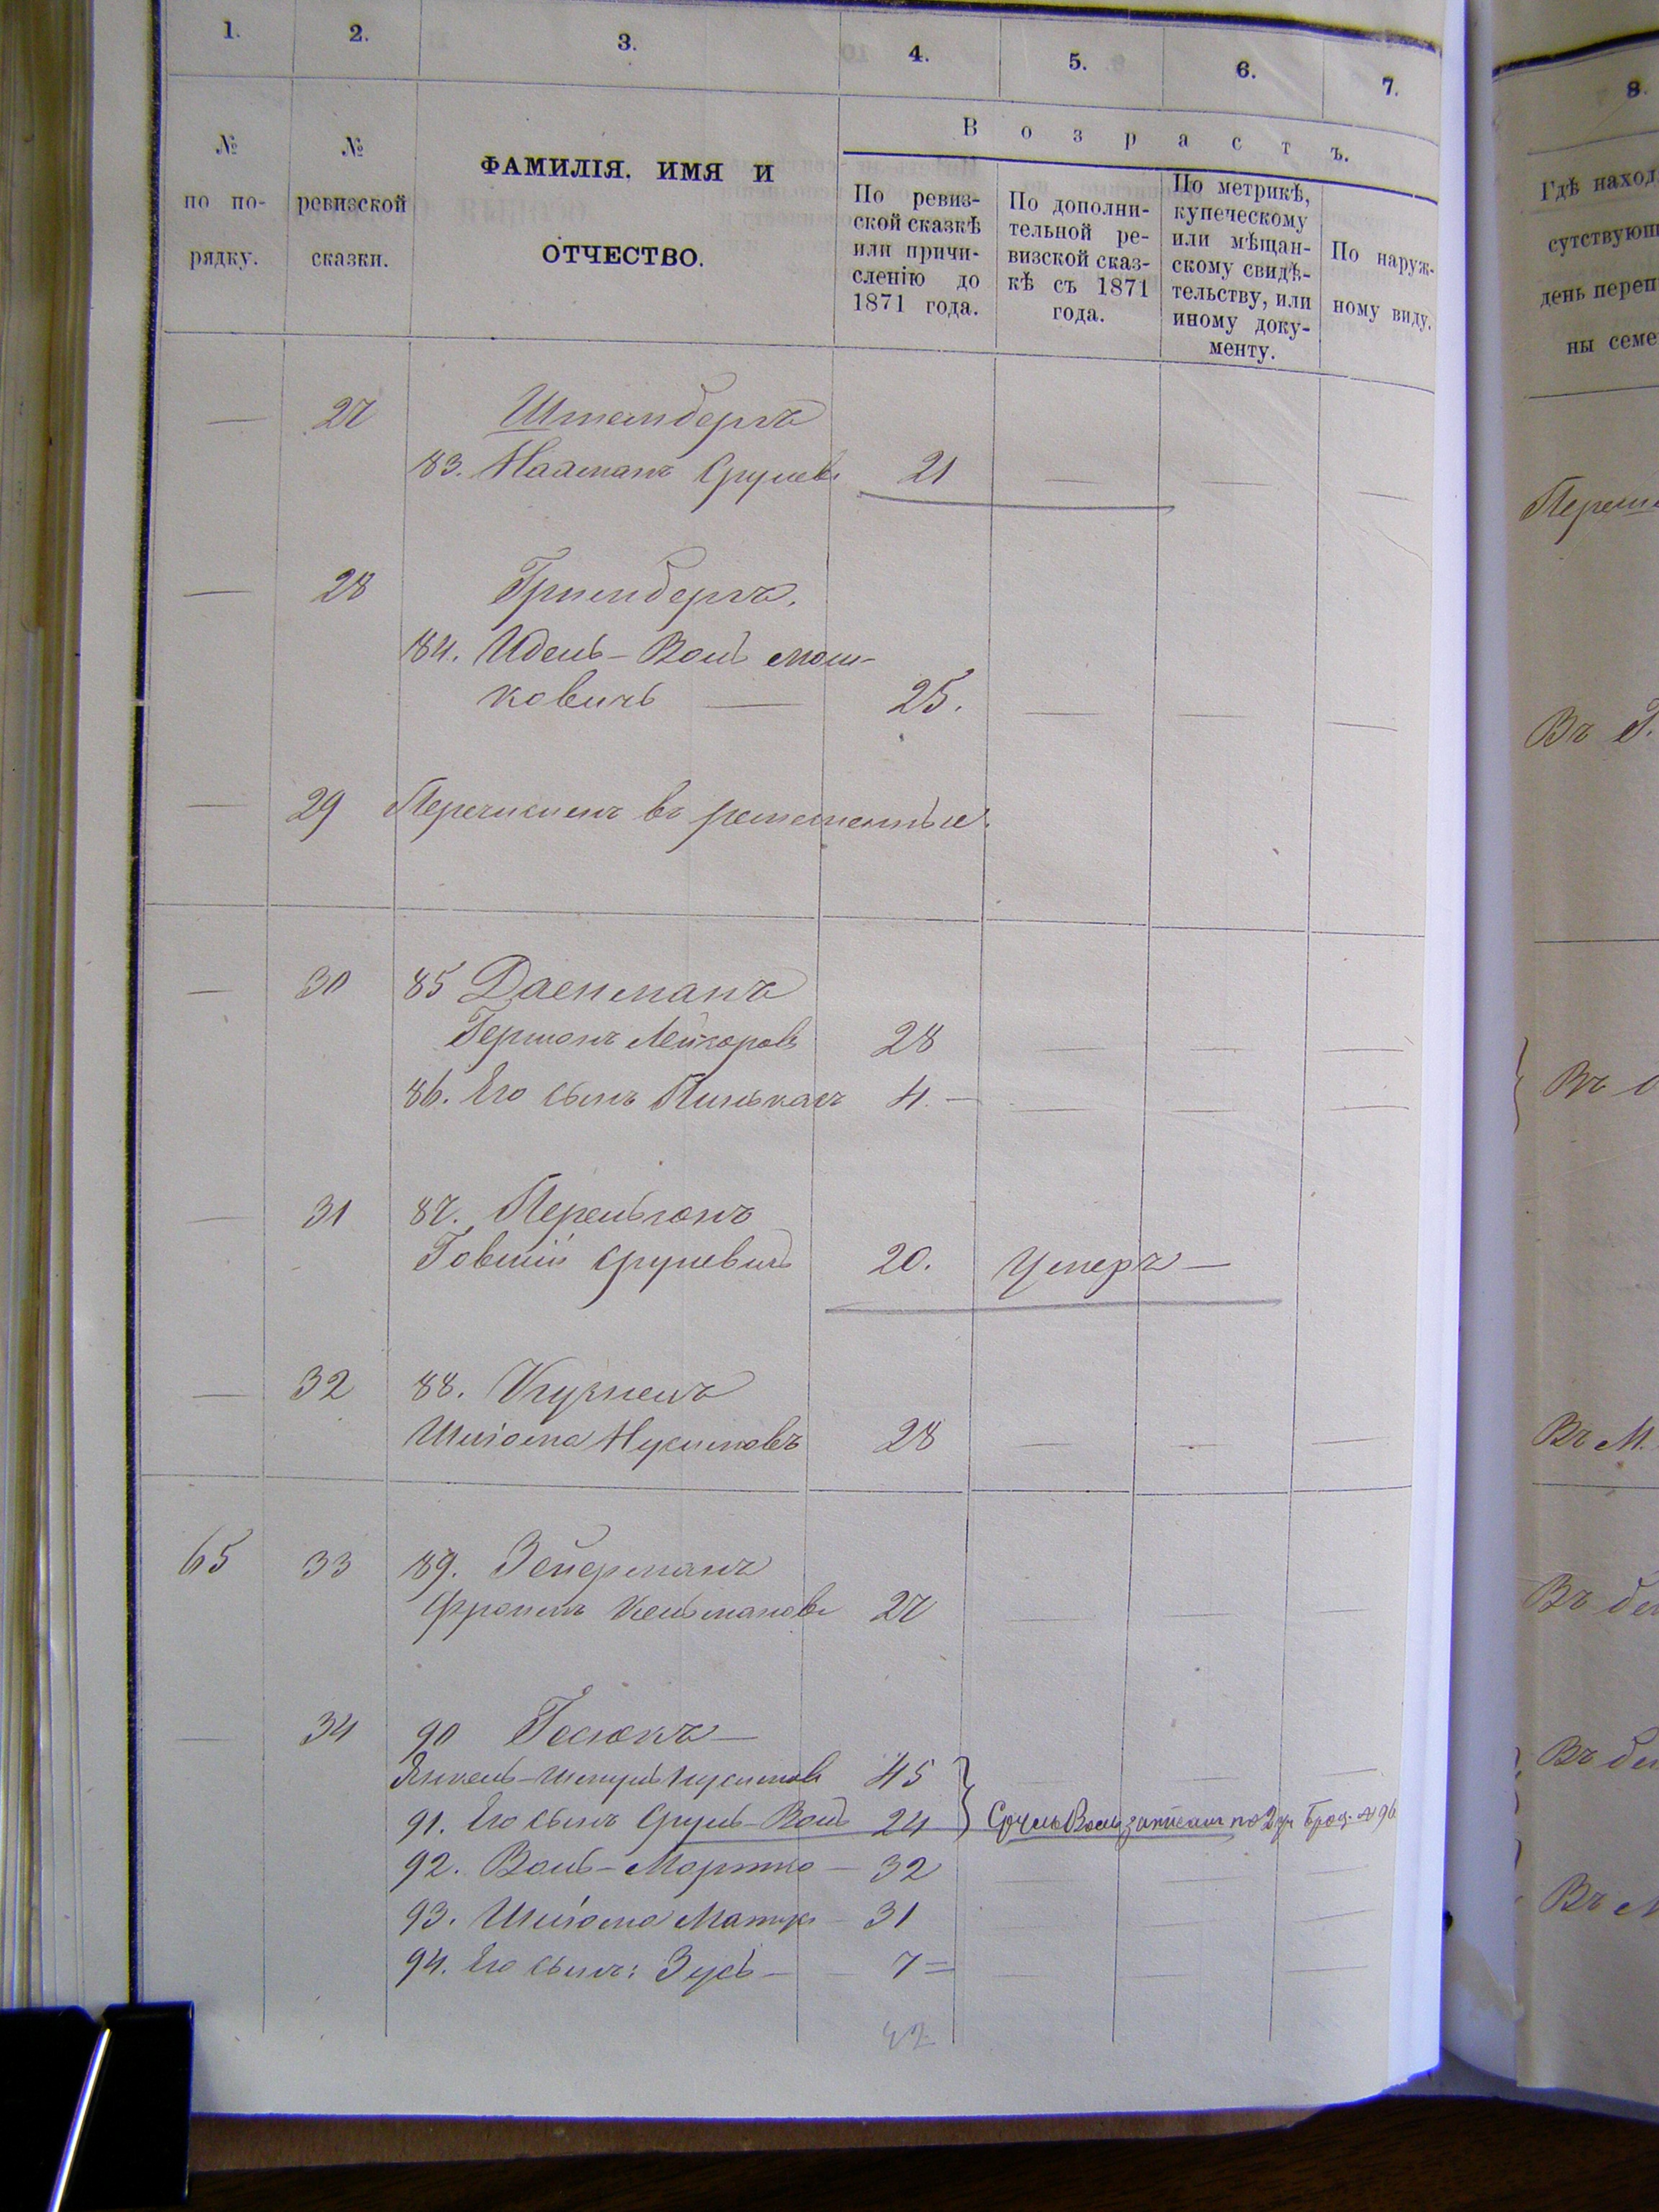 1. 2. 3. 4. 5. 6. 7.
№ по порядку.
№ ревизской сказки.
ФАМИЛІЯ, ИМЯ И ОТЧЕСТВО.
Возрастъ.
По ревиз-
ской сказкѣ
или причи-
сленію до
1871 года.
По дополни-
тельной ре-
визской сказ-
кѣ съ 1871
года.
По метрикѣ,
купеческому
или мѣщан-
скому свидѣ-
тельству, или
иному доку-
менту.
По наруж-
ному виду.
— 27 Штембергъ
83. Нахманъ Срулевъ 21 — — —
— 28 Гринбергъ.
84. Идель-Волъ Мош-
ковичъ — 25. — — —
— 29 Перечисленъ въ ремесленные.
— 30 85 Даенманъ
Гершонъ Лейзоровъ 28 — — —
86. Его сынъ Пинькасъ 4. — — — —
— 31 87. Перельгонъ
Говшiй Срулевичъ 20. Умеръ —
— 32 88. Кушнеръ
Шлiома Нусимовъ 28 — — —
65 33 89. Зейерманъ
Фроимъ Кельмановъ 27 — — —
— 34 90 Гославъ —
Янкель-Шмуль Нусимовъ 45
91. Его сынъ Сруль-Воль 24 } Сруль Воль записанъ по
92. Воль-Мортко — 32
93. Шлiома 31
94. Его сынъ: Зусь — 7 =
42
8.
Гдѣ наход
сутствующ
день переп
ны семе
Въ Г.
Въ М.